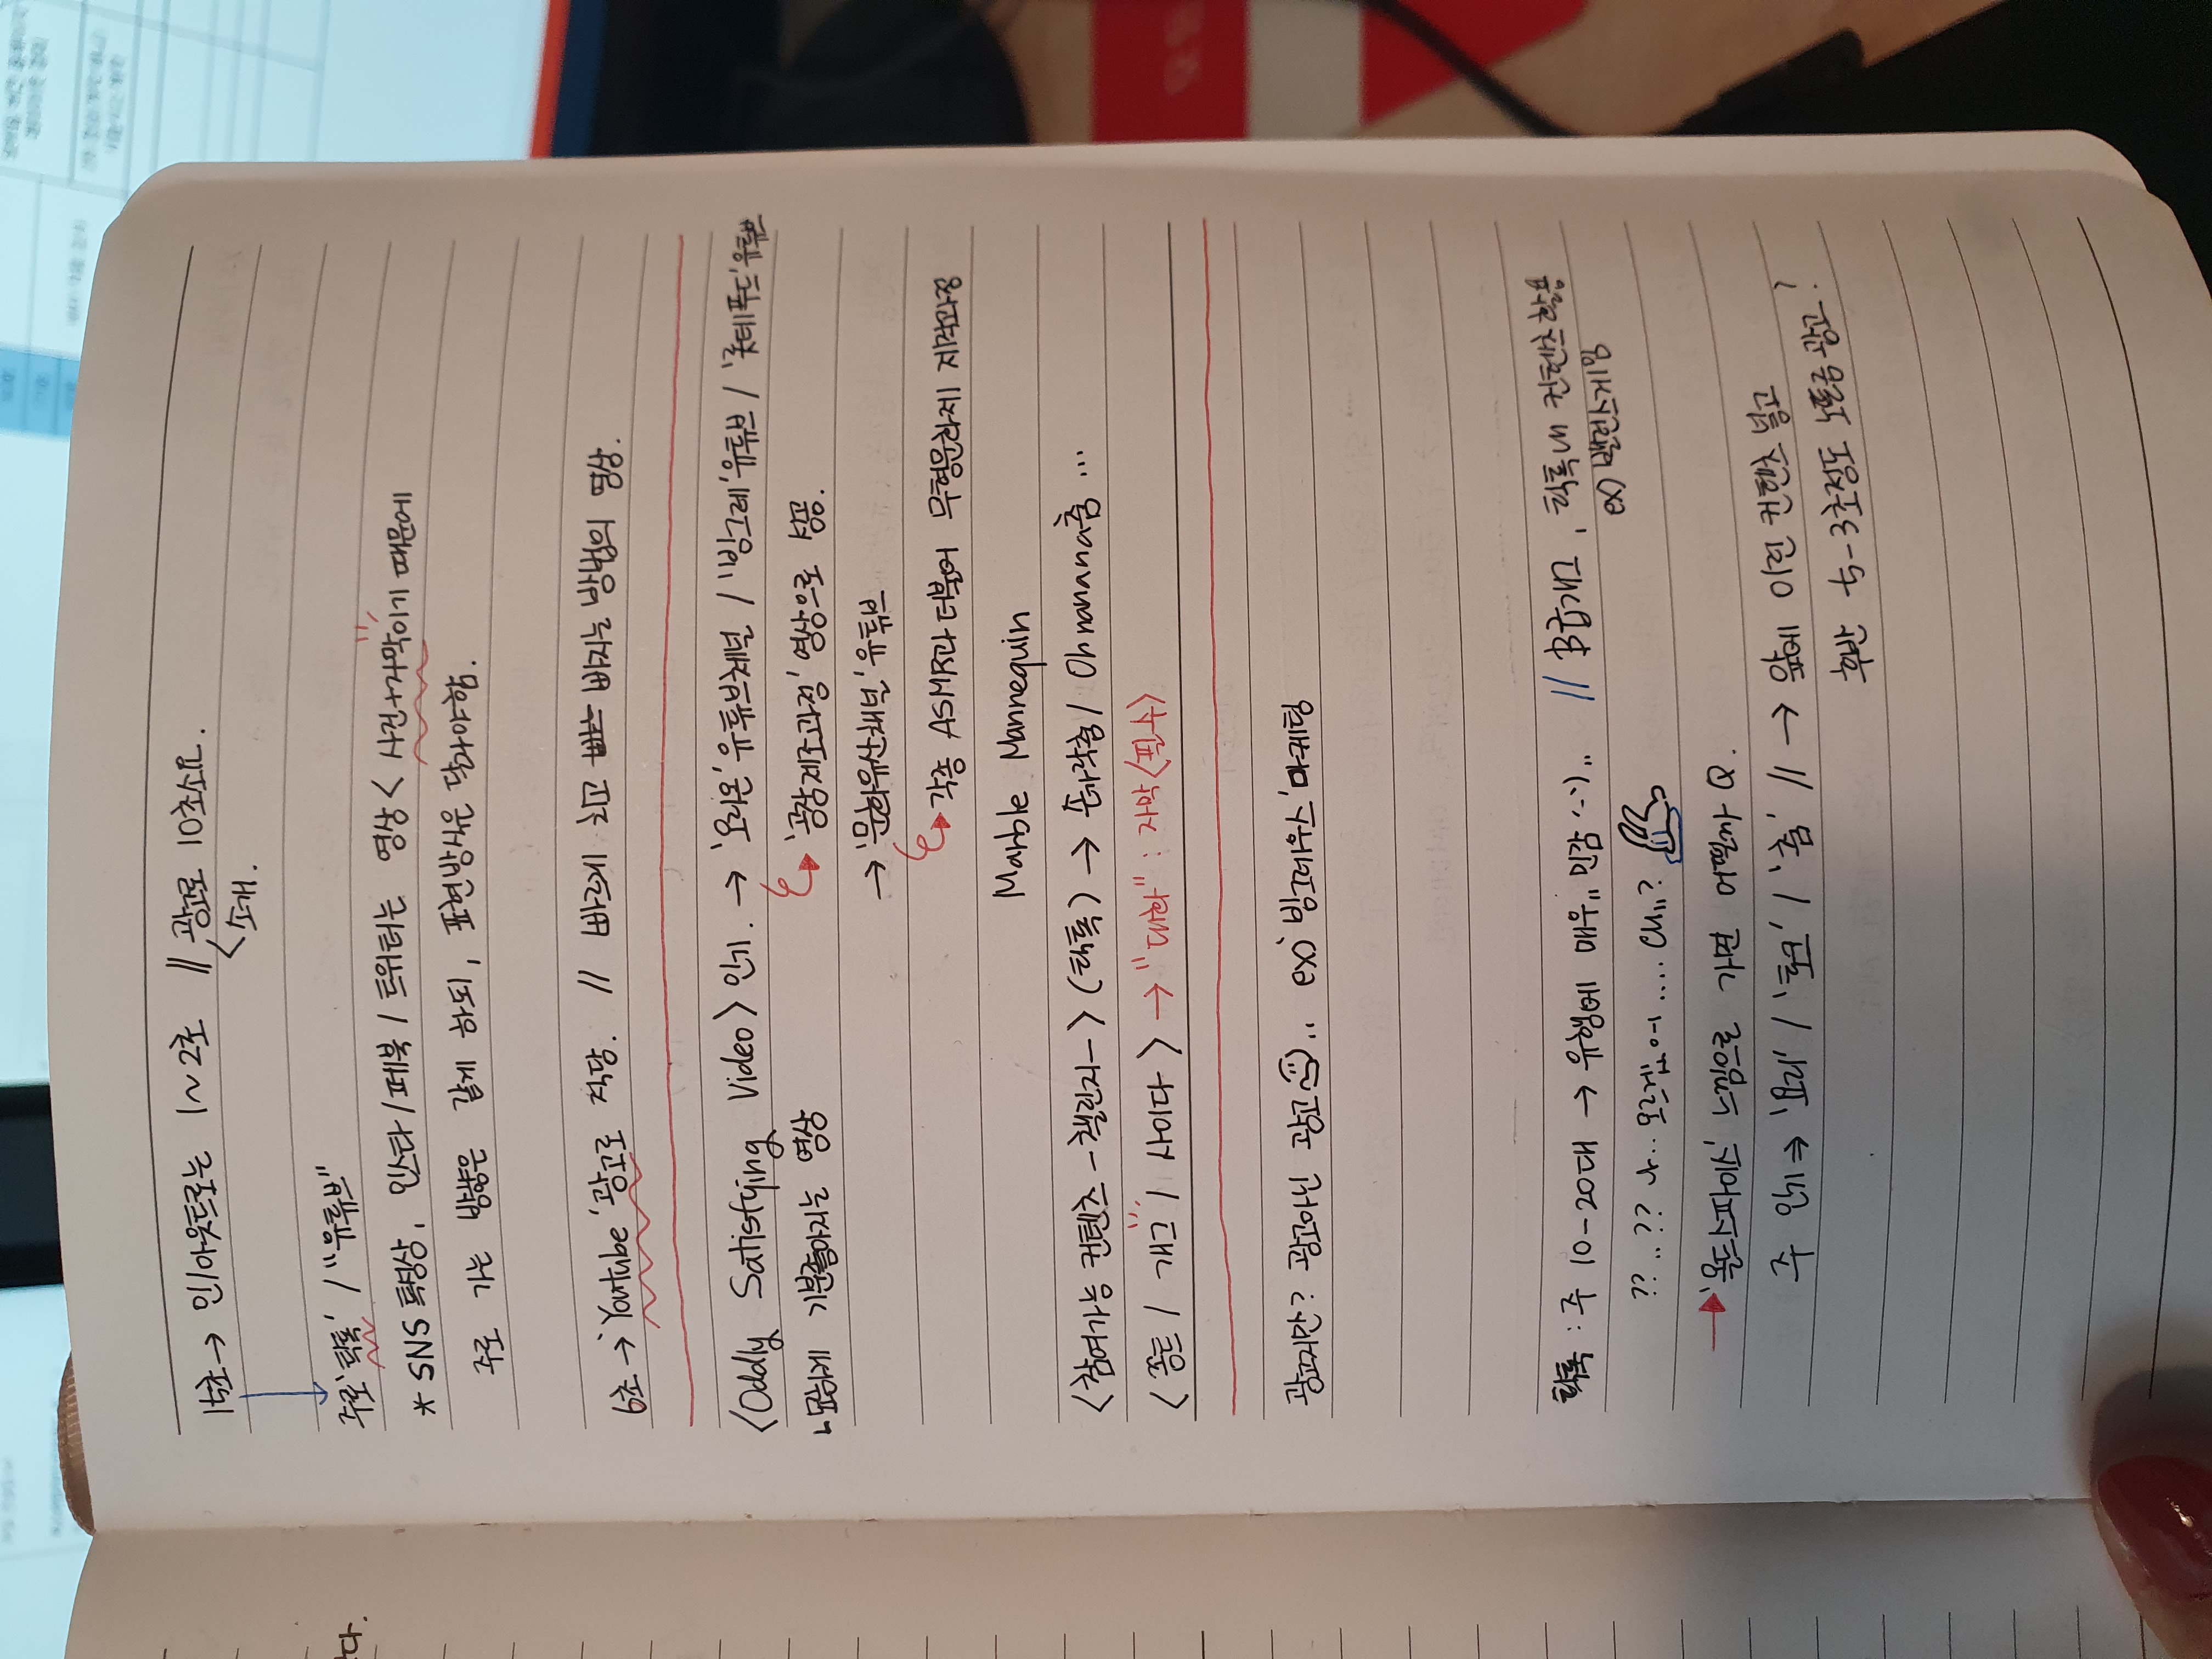 15초→ 인/아웃트로는 1~2초 // 광고로 10초소요.
< 소개.
주로 '틱톡' / "유튜브"
* SNS 특성상, 인스타/페북/트위터는 영상 < 사진+자막이기 때문에
주로 가는 방향은 같게 하되, 표현방식은 달라야함.
6초→ 'Youtube' 광고로 적당. // 빠르게 치고 빠지는 방법의 영상.
<Oddly Satisfying Video> 인기. → '오리온' 유튜브체널 / '빙그레' 유튜브 / '롯데푸드' 유튜브
ㄴ묘하게 기분좋아지는 영상
'공장제조과정' 영상으로 성공.
→ '문화유산채널' 유튜브
각종 ASMR과 더불어 무형문화제 제작과정
Marble Mannequin
<참여가능 컨텐츠 -챌린지-> (틱톡) → 손가락춤/ Ohnanana춤 ...
<콩트 / 개그 / 사이다> → "대화" : 자막<필수>
광고지만? 광고아닌 광고.. ex) '빙그레우스' 마케팅
틱톡 : 주 10-20대 → 유행에 매우,, 민감 // B급개그, 틱톡내 컨텐츠 활용
ex) 밸런스게임
??..?? 나.. 모르겠어....
→ '올드스파이스' 느낌으로 가면 어떨까 Q.
주 인기 ⇒ '요리' / '토크' / '춤' // → 앞에 이런 컨텐츠 넣고
후반 5-3초정도 노뜬금 광고?